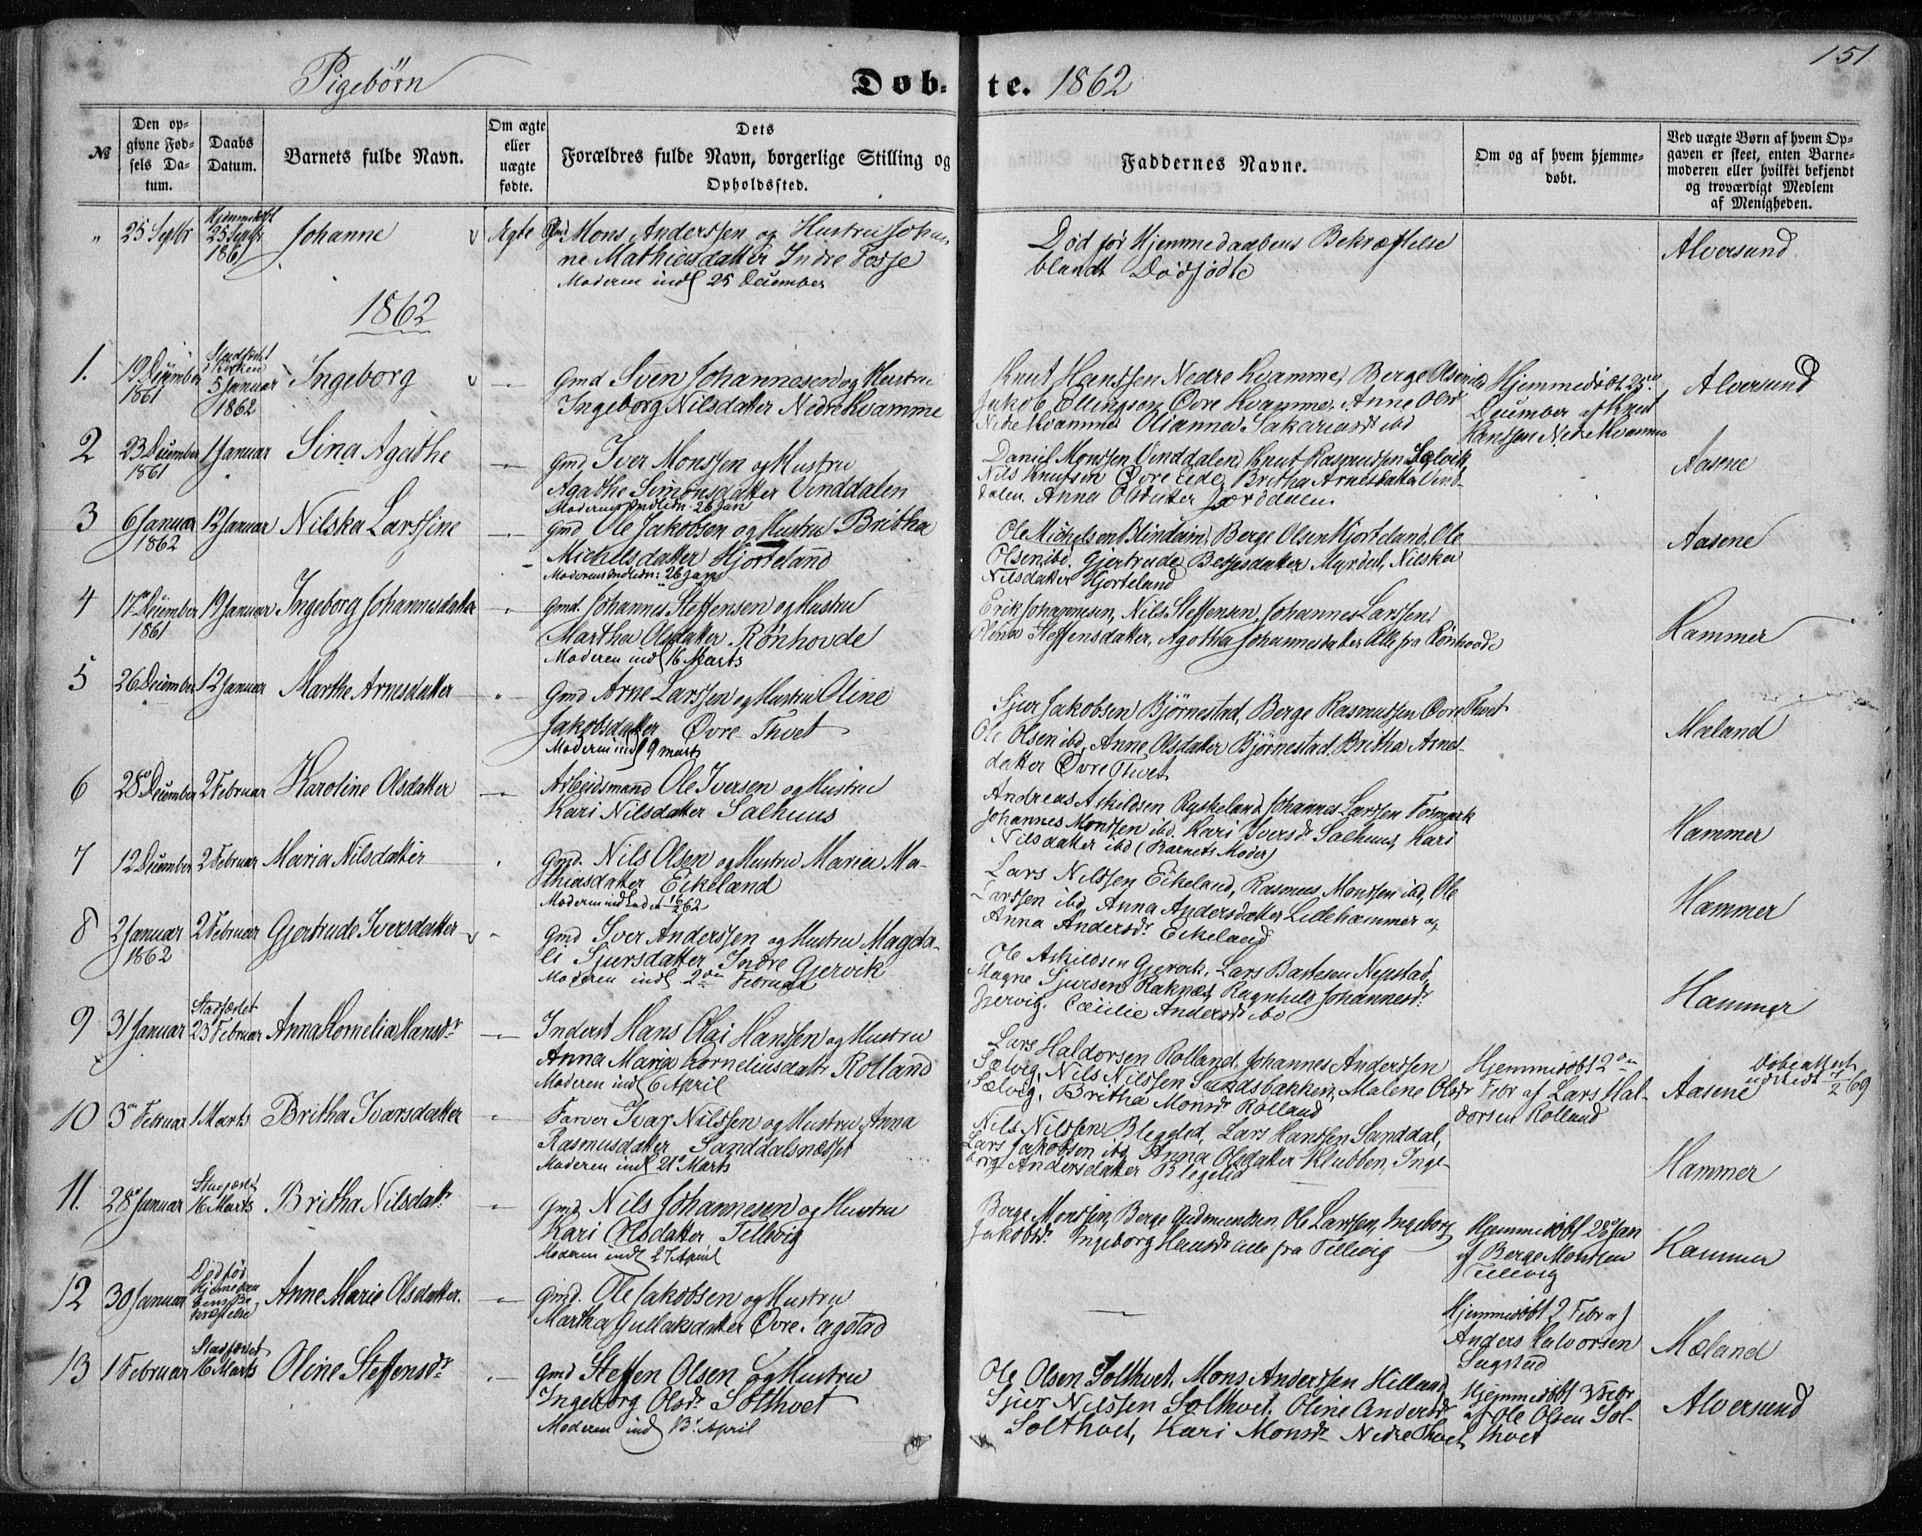 151
Pigebørn
Døb-te. 1862
№
Den opgivne Fødsels Datum.
Daabs Datum.
Barnets fulde Navn.
Om ægte eller uægte fødte.
Dets
Forældres fulde Navn, borgerlige Stilling og
Opholdssted.
Faddernes Navne.
Om og af hvem hjemmedøbt.
Ved uægte Børn af hvem Opgaven er skeet, enten Barnemoderen eller hvilket bekjendt og troværdigt Medlem af Menigheden.
" 25 Septbr
Hjemmedøbt
25 Septbr
1861
Johanne
Ægte
Gmd Mons Anderssen og Hustru Johanne
Mathiesdatter Indre Fosse
Moderen indl 25 December
Død før Hjemmedaabens Bekræftelse
blandt Dødfødte
Alversund
1862
1.
19 December
1861
Stadfæstet
i Kirken
5 Januar
1862
Ingeborg
Gmd Sven Johannesen og Hustru
Ingeborg Nilsdatter Nedre Kvamme
Knut Hanssen Nedre Kvamme, Berge Olsen ibd
Jakob Ellingsen Øvre Kvamme, Anne Olsdr
Nedre Kvamme Olianna Sakariasdr ibd
Hjemmedøbt 25de
December af Knut
Hanssen Nedre Kvamme
Alversund
2
23 December
1861
1 Januar
Sina Agathe
Gmd Iver Monssen og Hustru
Agathe Simonsdatter Vinddalen
Moderens Indledn. 26 Jan
Daniel Monssen Vinddalen, Knut Rasmussen Sælvik,
Nils Knutsen Øvre Eide, Britha Arnesdatter Vinddalen,
Anna Olsdatter
Aasene
3
6 Januar
1862
12 Januar
Nilska Larssine
Gmd Ole Jakobsen og Hustru Britha
Michelsdatter Hjorteland
Moderens Indledn: 26 Jan
Ole Michelsen Blindeim, Berge Olsen Hjorteland, Ole
Olsen ibd, Gjertrude Bergesdatter Myrdal, Nilska
Nilsdatter Hjorteland
Aasene
4
17 December
1861
19 Januar
Ingeborg Johannesdatter
Gmd. Johannes Steffensen og Hustru
Martha Olsdatter Rønhovde
Moderen indl 16 Marts
Erik Johannesen, Nils Steffensen, Johannes Larssen,
Olina Steffensdatter, Agotha Johannesdatter Alle fra Rønhovde
Hammer
5
26 December
12 Januar
Marthe Arnesdatter
Gmd Arne Larssen og Hustru Oline
Jakobsdatter Øvre Thvet
Moderen indl 9 marts
Sjur Jakobsen Bjørnestad, Berge Rasmussen Øvre Thvet
Ole Olsen ibd, Anne Olsdatter Bjørnestad, Britha Arnesdatter
Øvre Thvet
Mæland
6
28 December
2 Februar
Karoline Olsdatter
Arbeidsmand Ole Iversen og Hustru
Kari Nilsdatter Salhuus
Andreas Askildsen Ryskeland, Johannes Larssen Formark
Johannes Monssen ibd. Kari Iversdr Salhuus, Kari
Nilsdatter ibd (Barnets Moder)
Hammer
7
12 December
2 Februar
Maria Nilsdatter
Gmd. Nils Olsen og Hustru Maria Mathiasdatter
Eikeland
Moderen indleden 16/2 62
Lars Nilssen Eikeland, Rasmus Monssen ibd, Ole
Larssen ibd, Anna Andersdatter Lillehammer og
Anna Andersdr Eikeland
Hammer
8
2 Januar
1862
2 Februar
Gjertrude Iversdatter
Gmd Iver Anderssen og Hustru Magdali
Sjursdatter Indre Gjervik
Moderen indl 2den Februar
Ole Askildsen Gjervik, Lars Bastesen Nepstad,
Magne Sjursen Raknæs, Ragnhild Johannesdr
Gjervig, Cæcilie Andersdr ibd
Hammer
9
31 Januar
Stadfæstet
23 Februar
Anna Kornelia Hansdr
Inderst Hans Olai Hanssen og Hustru
Anna Maria Corneliusdatr Rolland
Moderen indl 6 April
Lars Haldorsen Rolland, Johannes Anderssen
Sælvig, Nils Nilssen Sandsbakken, Malene Olsdr
Sælvig, Britha Monsdr Rolland
Hjemmedøbt 2den
Febr af Lars Haldorsen
Rolland
Aasene
Døbeattest
udstedt 7/2 69
10
3 Februar
1 Marts
Britha Ivarsdatter
Farver Ivar Nilssen og Hustru Anna
Rasmusdatter Sanddalsnæsset
Moderen indl 21 Marts
Nils Nilssen Blegelid, Lars Hanssen Sanddal,
Lars Jakobsen ibd, Anna Olsdatter Klubben, Ingeborg
Andersdatter Blegelid
Hammer
11.
28 Januar
Stadfæstet
16 Marts
Britha Nilsdatr
Gmd Nils Johannesen og Hustru
Kari Olsdatter Tellevig
Moderen indl 27 April
Berge Monssen, Berge Gudmundsen Ole Larssen, Ingeborg
Jakobsdr Ingeborg Hansdr alle fra Tellevig
Hjemmedøbt 28 Jan
af Berge Monssen
Tellevig
Hammer
12
30 Januar
Død før
Hjemmedaabens
Bekræftelse
Anne Marie Olsdatter.
Gmd. Ole Jakobsen og Hustru
Martha Gullaksdatter Øvre Sagstad
Hjemmedøbt 2 Febr af
Anders Halvorsen
Sagstad
Mæland
13
1 Februar
Stadfæstet
16 Marts
Oline Steffensdr
Gmd Steffen Olsen og Hustru
Ingeborg Olsdr Solthvet
Moderen indl 13 April
Ole Olsen Solthvet, Mons Anderssen Hilland
Sjur Nilssen Solthvet, Oline Andersdr
Solthvet, Kari Monsdr Nedre Thvet
Hjemmedøbt 3 Febr
af Ole Olsen Solthvet
Alversund